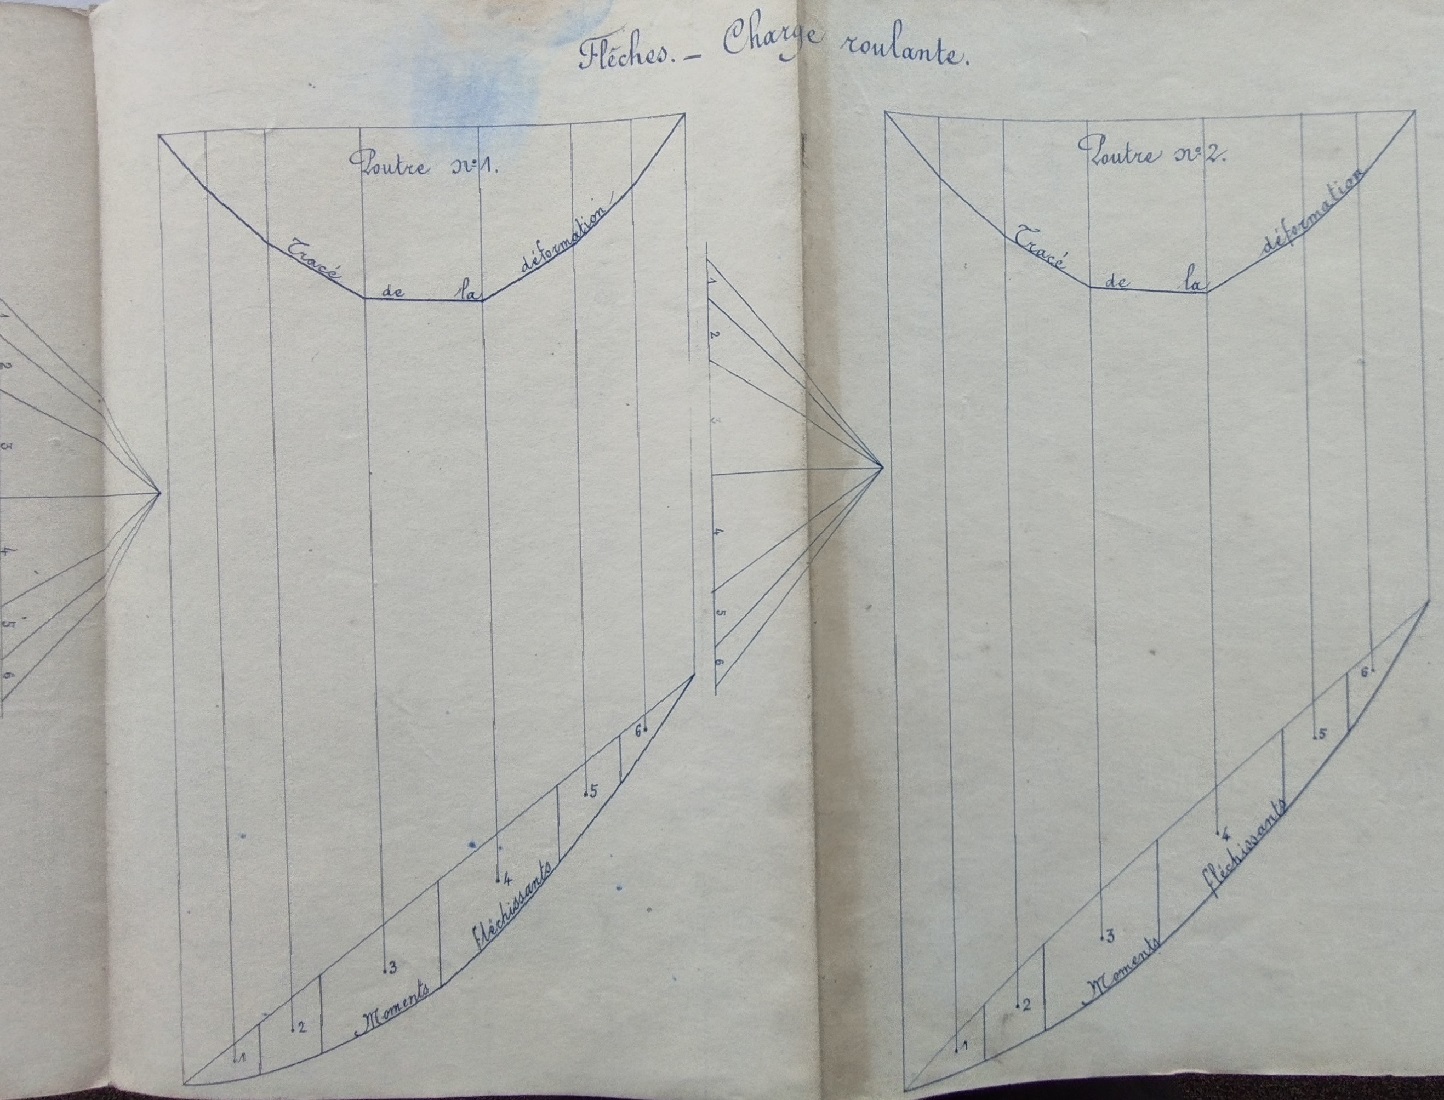 Flêches. - Charge roulante.
Poutre nº 1.
Tracé de la déformation
1
2
3
4
5
6
Moments fléchissants
1
2
3
4
5
6
Poutre nº 2.
Tracé de la déformation
1
2
3
4
5
6
Moments fléchissants
1
2
3
4
5
6